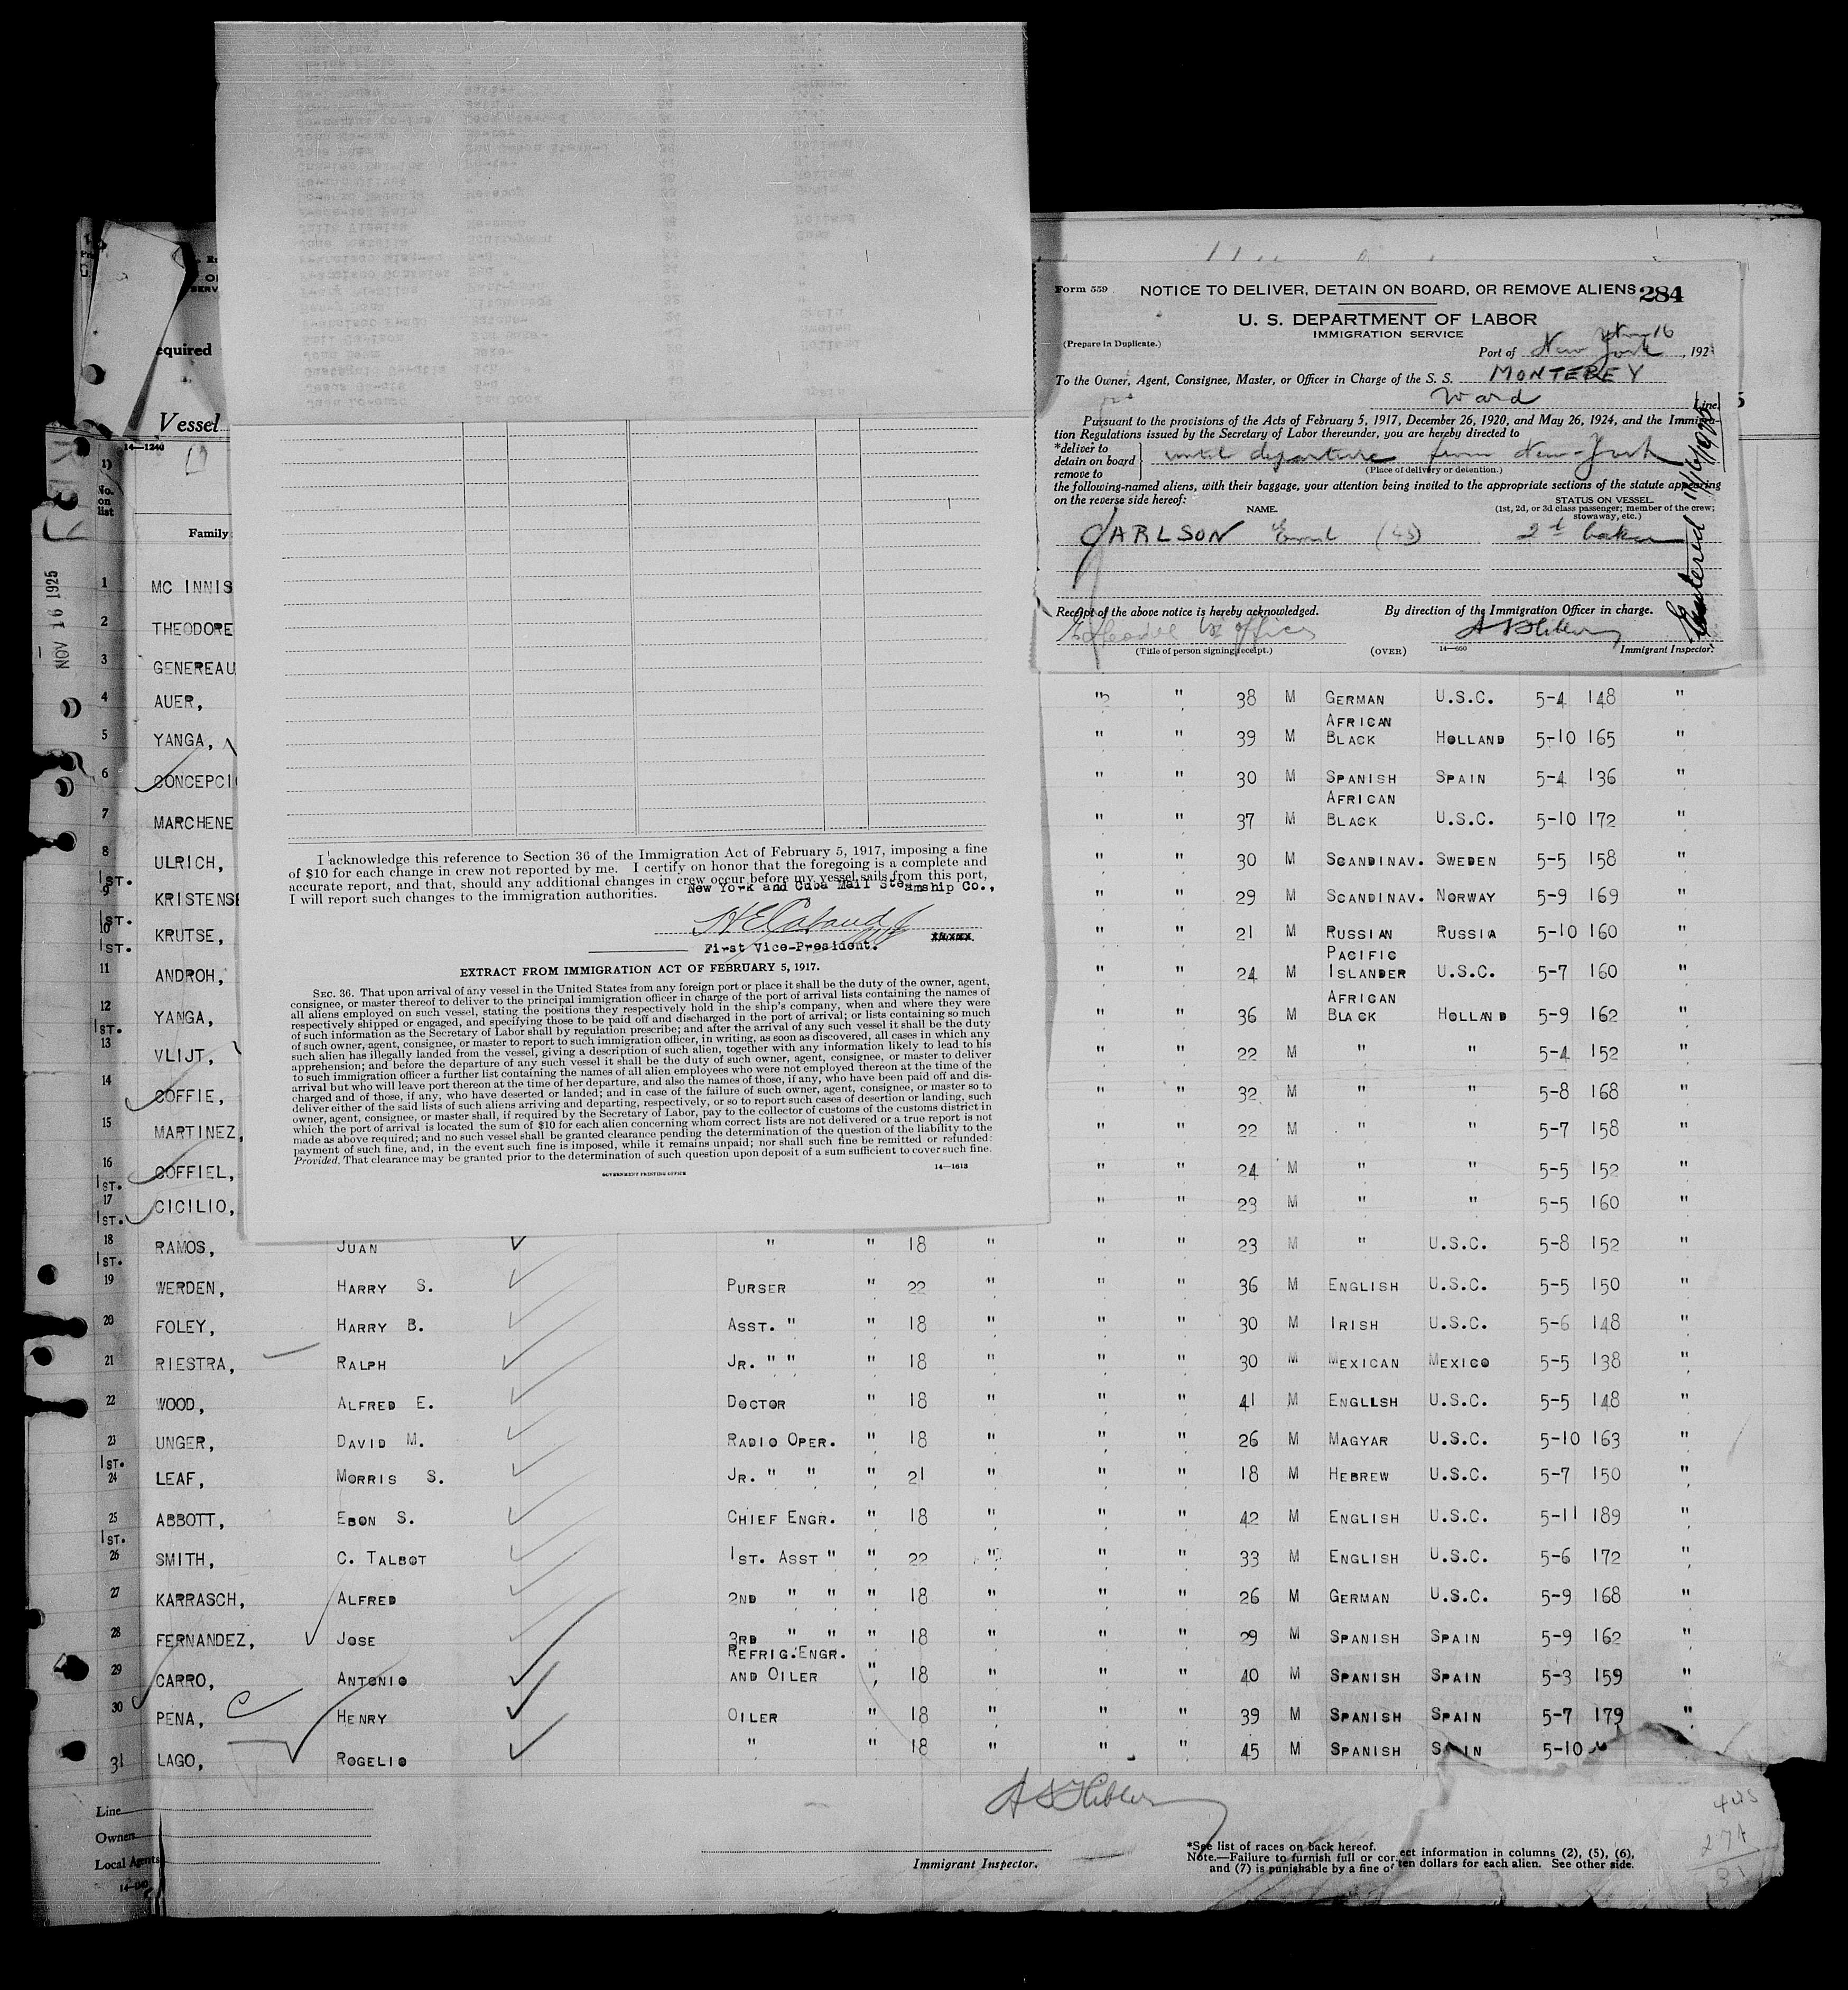 Form 559
NOTICE TO DELIVER, DETAIN ON BOARD, OR REMOVE ALIENS 284
U. S. DEPARTMENT OF LABOR
IMMIGRATION SERVICE
(Prepare in Duplicate.)
Port of New York, 192
To the Owner, Agent, Consignee, Master, or Officer in Charge of the S. S. MONTEREY
Ward Line
Pursuant to the provisions of the Acts of February 5, 1917, December 26, 1920, and May 26, 1924, and the Immigra-
tion Regulations issued by the Secretary of Labor thereunder, you are hereby directed to
*deliver to
detain on board
remove to
until departure from New-York
(Place of delivery or detention.)
the following-named aliens, with their baggage, your attention being invited to the appropriate sections of the statute appearing
on the reverse side hereof:
NAME.
STATUS ON VESSEL
(1st, 2d, or 3d class passenger; member of the crew;
stowaway, etc.)
CARLSON Emil (45) 2d baker
Entered 11/16/1925
Receipt of the above notice is hereby acknowledged.
By direction of the Immigration Officer in charge.
(Title of person signing receipt.)
(OVER)
14—650
Immigrant Inspector.
equired
Vessel
14—1240
NOV 16 1925
No.
on
list
Family
1 MC INNIS
2 THEODORE
3 GENEREAU
4 AUER, " " 38 M GERMAN U.S.C. 5-4 148 "
5 YANGA, " " 39 M AFRICAN BLACK HOLLAND 5-10 165 "
6 CONCEPCI " " 30 M SPANISH SPAIN 5-4 136 "
7 MARCHENE " " 37 M AFRICAN BLACK U.S.C. 5-10 172 "
8 ULRICH, " " 30 M SCANDINAV. SWEDEN 5-5 158 "
1ST.
9 KRISTENSE " " 29 M SCANDINAV. NORWAY 5-9 169 "
1ST.
10 KRUTSE, " " 21 M RUSSIAN RUSSIA 5-10 160 "
1ST.
11 ANDROH, " " 24 M PACIFIC ISLANDER U.S.C. 5-7 160 "
12 YANGA, " " 36 M AFRICAN BLACK HOLLAND 5-9 162 "
1ST.
13 VLIJT, " " 22 M " " 5-4 152 "
14 COFFIE, " " 32 M " " 5-8 168 "
15 MARTINEZ, " " 22 M " " 5-7 158 "
16 COFFIEL, " " 24 M " " 5-5 152 "
1ST.
17 CICILIO, " " 23 M " " 5-5 160 "
1ST.
18 RAMOS, JUAN " " 18 " " " 23 M " U.S.C. 5-8 152 "
1ST.
19 WERDEN, HARRY S. PURSER " 22 " " " 36 M ENGLISH U.S.C. 5-5 150 "
20 FOLEY, HARRY B. ASST. " " 18 " " " 30 M IRISH U.S.C. 5-6 148 "
21 RIESTRA, RALPH JR. " " " 18 " " " 30 M MEXICAN MEXICO 5-5 138 "
22 WOOD, ALFRED E. DOCTOR " 18 " " " 41 M ENGLLSH U.S.C. 5-5 148 "
23 UNGER, DAVID M. RADIO OPER. " 18 " " " 26 M MAGYAR U.S.C. 5-10 163 "
1ST.
24 LEAF, MORRIS S. JR. " " " 21 " " " 18 M HEBREW U.S.C. 5-7 150 "
25 ABBOTT, EBON S. CHIEF ENGR. " 18 " " " 42 M ENGLISH U.S.C. 5-11 189 "
1ST.
26 SMITH, C. TALBOT 1ST. ASST " " 22 " " " 33 M ENGLISH U.S.C. 5-6 172 "
27 KARRASCH, ALFRED 2ND " " " 18 " " " 26 M GERMAN U.S.C. 5-9 168 "
28 FERNANDEZ, JOSE 3RD " " " 18 " " " 29 M SPANISH SPAIN 5-9 162 "
29 CARRO, ANTONIO REFRIG.ENGR. AND OILER " 18 " " " 40 M SPANISH SPAIN 5-3 159 "
30 PENA, HENRY OILER " 18 " " " 39 M SPANISH SPAIN 5-7 179 "
31 LAGO, ROGELIO " " 18 " " " 45 M SPANISH SPAIN 5-10
I acknowledge this reference to Section 36 of the Immigration Act of February 5, 1917, imposing a fine
of $10 for each change in crew not reported by me. I certify on honor that the foregoing is a complete and
accurate report, and that, should any additional changes in crew occur before my vessel sails from this port,
I will report such changes to the immigration authorities.
New York and Cuba Mail Steamship Co.,
First Vice-President.
EXTRACT FROM IMMIGRATION ACT OF FEBRUARY 5, 1917.
SEC. 36. That upon arrival of any vessel in the United States from any foreign port or place it shall be the duty of the owner, agent,
consignee, or master thereof to deliver to the principal immigration officer in charge of the port of arrival lists containing the names of
all aliens employed on such vessel, stating the positions they respectively hold in the ship's company, when and where they were
respectively shipped or engaged, and specifying those to be paid off and discharged in the port of arrival; or lists containing so much
of such information as the Secretary of Labor shall by regulation prescribe; and after the arrival of any such vessel it shall be the duty
of such owner, agent, consignee, or master to report to such immigration officer, in writing, as soon as discovered, all cases in which any
such alien has illegally landed from the vessel, giving a description of such alien, together with any information likely to lead to his
apprehension; and before the departure of any such vessel it shall be the duty of such owner, agent, consignee, or master to deliver
to such immigration officer a further list containing the names of all alien employees who were not employed thereon at the time of the
arrival but who will leave port thereon at the time of her departure, and also the names of those, if any, who have been paid off and dis-
charged and of those, if any, who have deserted or landed; and in case of the failure of such owner, agent, consignee, or master so to
deliver either of the said lists of such aliens arriving and departing, respectively, or so to report such cases of desertion or landing, such
owner, agent, consignee, or master shall, if required by the Secretary of Labor, pay to the collector of customs of the customs district in
which the port of arrival is located the sum of $10 for each alien concerning whom correct lists are not delivered or a true report is not
made as above required; and no such vessel shall be granted clearance pending the determination of the question of the liability to the
payment of such fine, and, in the event such fine is imposed, while it remains unpaid; nor shall such fine be remitted or refunded:
Provided, That clearance may be granted prior to the determination of such question upon deposit of a sum sufficient to cover such fine.
GOVERNMENT PRINTING OFFICE
14—1613
Line
Owners
Local Agents
Immigrant Inspector.
*See list of races on back hereof.
Note.—Failure to furnish full or correct information in columns (2), (5), (6),
and (7) is punishable by a fine of ten dollars for each alien. See other side.